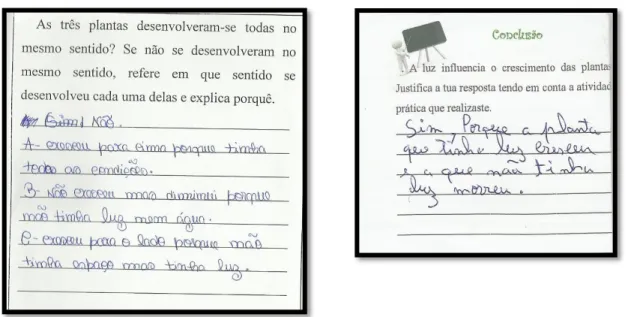 As três plantas desenvolveram-se todas no
mesmo sentido? Se não se desenvolveram no
mesmo sentido, refere em que sentido se
desenvolveu cada uma delas e explica porquê.
Não.
A- cresceu para cima porque tinha
todas as condições.
B- Não cresceu mas diminui porque
não tinha luz nem água.
C- cresceu para o lado porque não
tinha espaço mas tinha luz.
Conclusão
A luz influencia o crescimento das plantas
Justifica a tua resposta tendo em conta a atividad
prática que realizaste.
Sim, Porque a planta
que tinha luz cresceu
e a que não tinha
luz morreu.